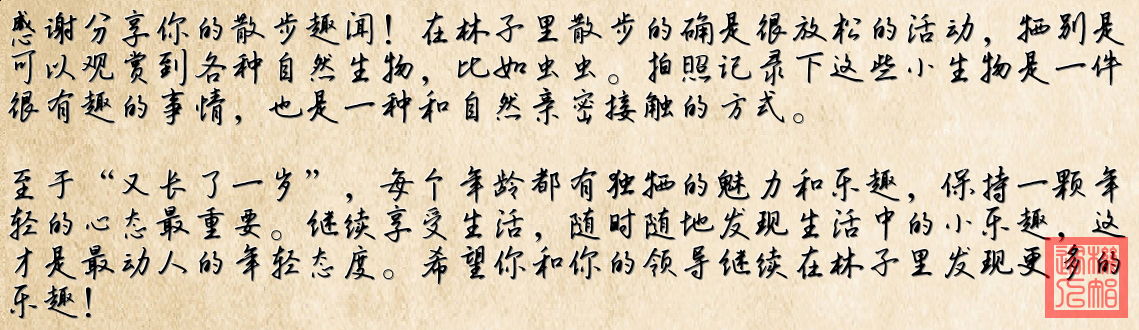 感谢分享你的散步趣闻！在林子里散步的确是很放松的活动，牺别是
可以观赏到各种自然生物，比如虫虫。拍照记录下这些小生物是一件
很有趣的事情，也是一种和自然亲密接触的方式。
至于“又长了一岁”，每个年龄都有独牺的魅力和乐趣，保持一颗年
轻的心态最重要。继续享受生活，随时随地发现生活中的小乐趣，这
才是最动人的年轻态度。希望你和你的领导继续在林子里发现更多的
乐趣！